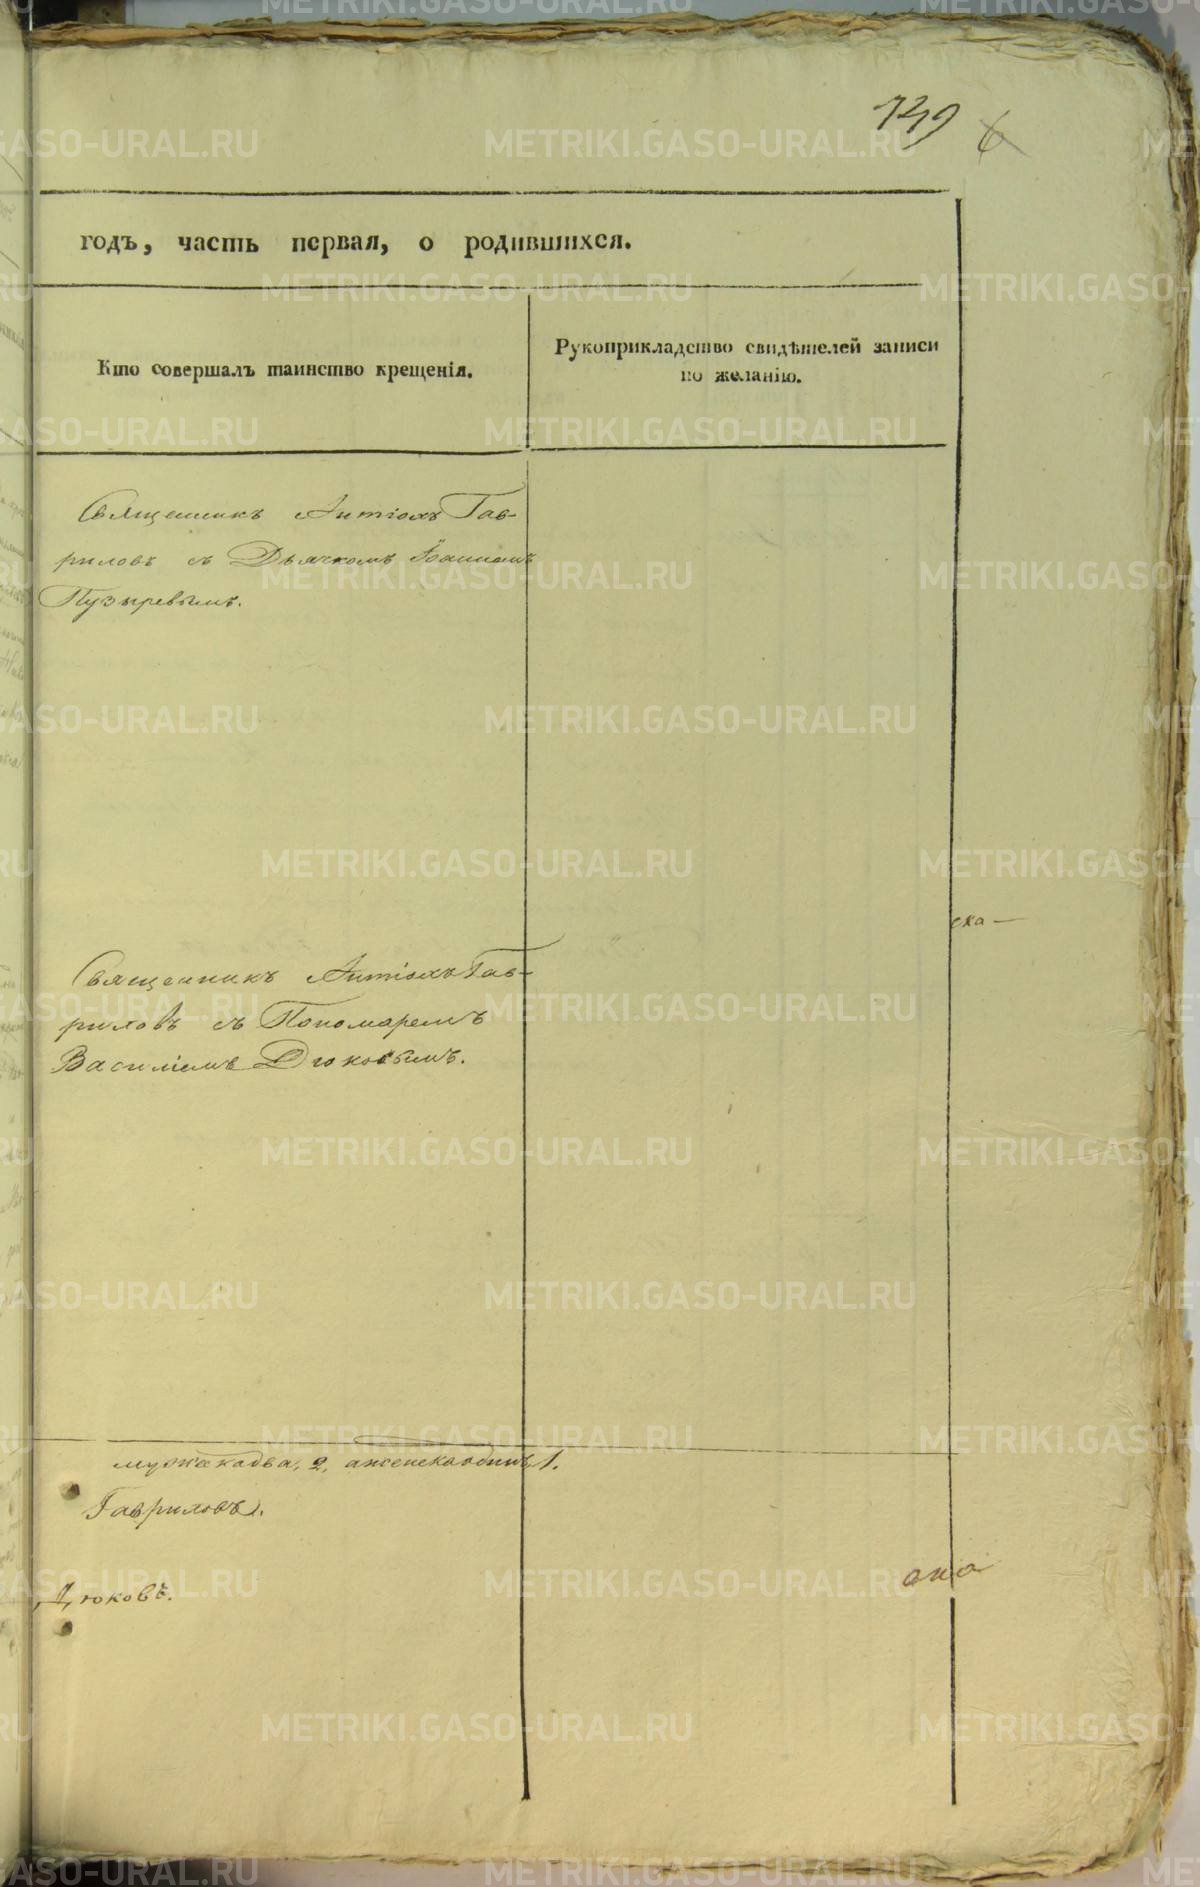 739 6
годъ, часть первая, о родившихся.
Кто совершалъ таинство крещенія.
Рукоприкладство свидѣтелей записи
по желанію.
Священникъ Антіохъ Гав-
риловъ съ Дьячкомъ Іоанномъ
Пузыревымъ.
ска —
Священникъ Антіохъ Гав-
риловъ съ Пономаремъ
Василіемъ Дюковымъ.
мужеска два, 2, а женска одинъ, 1.
Гавриловъ.
Дюковъ.
METRIKI.GASO-URAL.RU